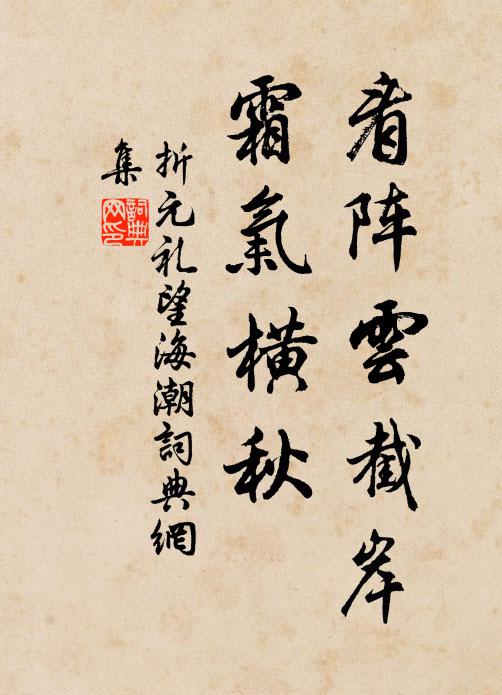 看阵雲截岸
霜氣橫秋
折元礼望海潮詞典網
集
詞典網印